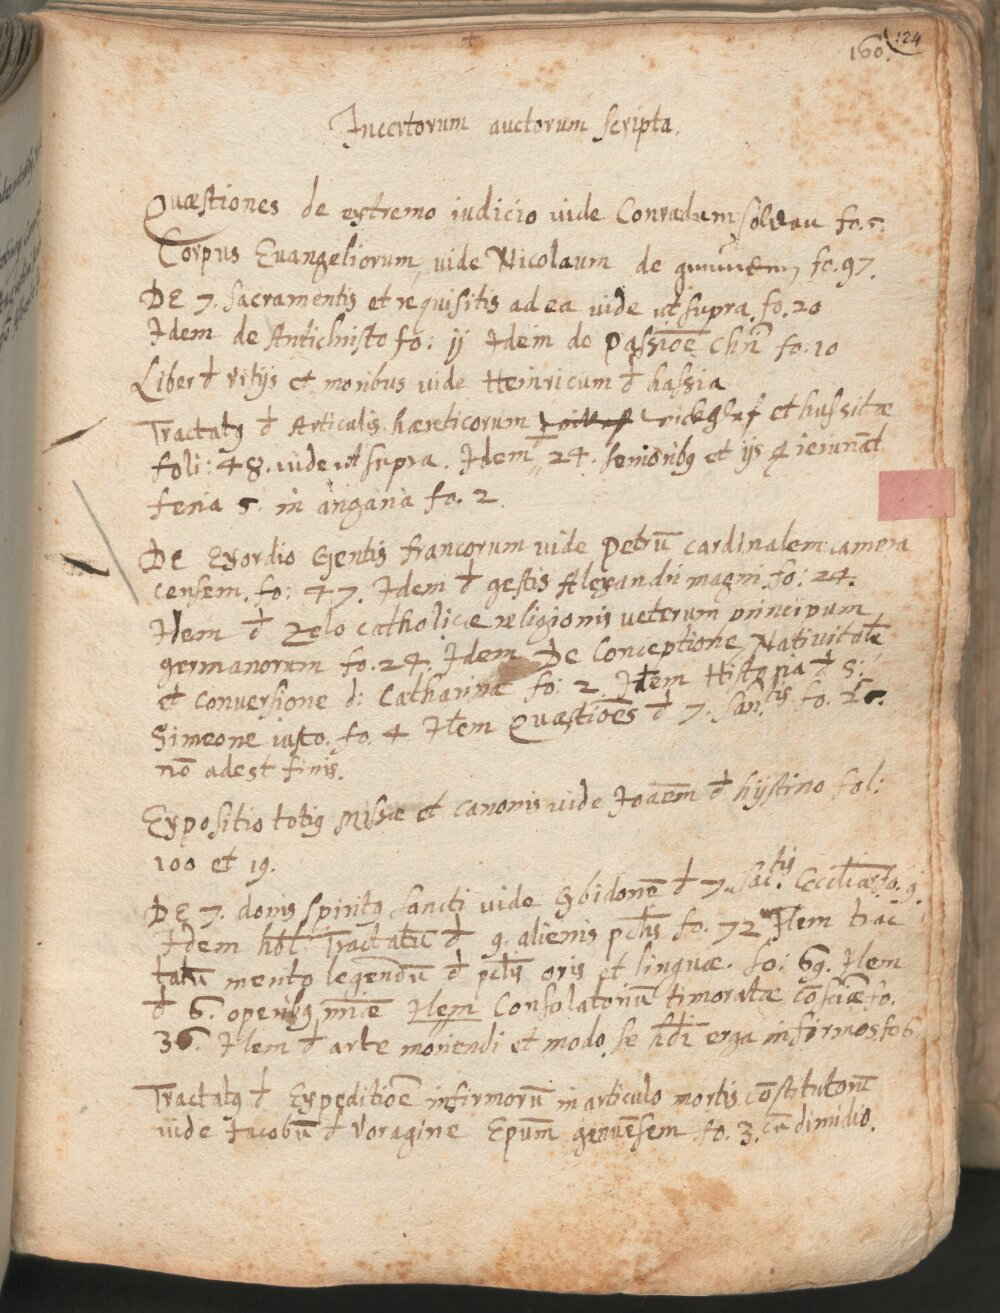 124
160.
Incertorum auctorum scripta.
Quæstiones de extremo iudicio uide Conradum soldau fo. 5.
Corpus Euangeliorum, uide Nicolaum de fo. 97.
DE 7. sacramentis et requisitis ad ea uide ut supra fo. 20
Idem de Antichristo fo: ij Idem de Passiōe Chri fo. 10
Liber đ vitijs et moribus uide Heinricum đ hassia
Tractatꝰ đ Articulis hæreticorum wickglef et hussitæ
foli: 48. uide ut supra. Idem 24. seniōribꝰ et ijs q ieiunāt
feria 5. in angaria fo. 2.
DE Exordio Gentis francorum uide Petrū cardinalem camera
censem. fo: 47. Idem đ gestis Alexandri magni fo: 24.
Item đ Zelo catholicæ religionis ueterum principum
germanorum fo. 24. Idem De Conceptione Nativitate
et conversione d: Catharinæ fo: 2. Item Historia đ S:
Simeone iusto. fo. 4. Item Quæstiões đ 7. San:tis fo.
nō adest finis.
Expositio totiꝰ Missæ et canonis uide Ioāem đ hystino fol:
100 et 19.
DE 7. donis spiritꝰ sancti uide Gbidonē đ 7. Sac:tis Ceciliæ fo. 9.
Idem hbt Tractatū đ 9. alienis pctis fo. 72 Item trac
tatū mento legendū đ pctis oris et linguæ. fo: 69. Item
đ 6. operibꝰ miæ Item Consolatoriū timoratæ cōsciæ fo.
36. Item đ arte moriendi et modo se hbdi erga infirmos. fo 6
Tractatꝰ đ Expeditiōe infirmorū in articulo mortis cōstitutorū
uide Iacobū đ Voragine Epūm genuēsem fo. 3. cū dimidio.